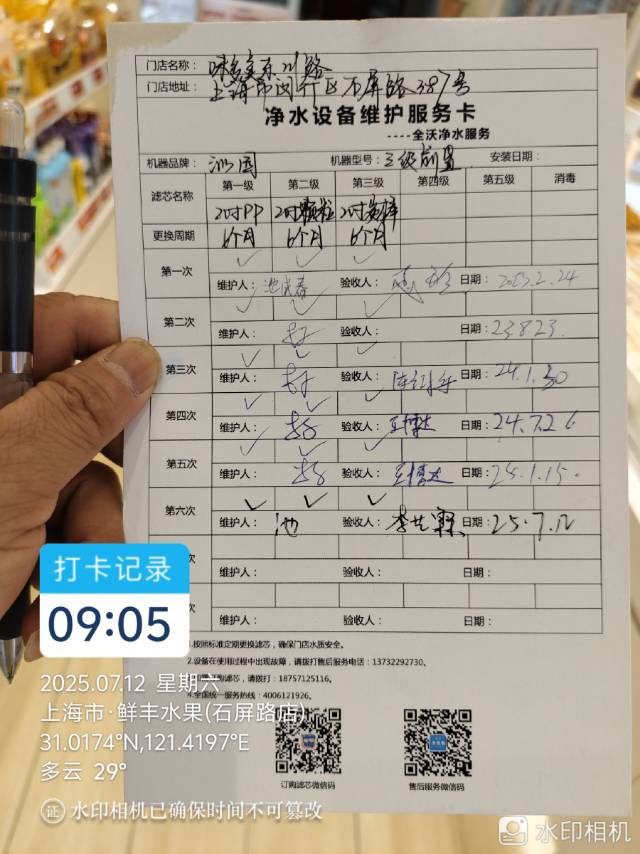 门店名称：
门店地址：上海市闵行区石屏路387号
净水设备维护服务卡
----全沃净水服务
机器品牌：沁园 机器型号：三级前置 安装日期：
滤芯名称 第一级 第二级 第三级 第四级 第五级 消毒
20寸PP 20寸颗粒 20寸
更换周期 6个月 6个月 6个月
第一次
维护人： 验收人： 日期：2023.2.24
第二次
维护人： 验收人： 日期：23.8.23.
第三次
维护人： 验收人： 日期：24.1.30
第四次
维护人： 验收人：王博达 日期：24.7.26
第五次
维护人： 验收人：王博达 日期：25.1.15.
第六次
维护人：池 验收人： 日期：25.7.12
次
维护人： 验收人： 日期：
次
维护人： 验收人： 日期：
1.按照标准定期更换滤芯，确保门店水质安全。
2.设备在使用过程中出现故障，请拨打售后服务电话：13732292730。
滤芯，请拨打：18757125116。
4.全国统一服务热线：4006121926。
订购滤芯微信码 售后服务微信码
打卡记录
09:05
2025.07.12 星期六
上海市·鲜丰水果(石屏路店)
31.0174°N,121.4197°E
多云 29°
证 水印相机已确保时间不可篡改
水印相机